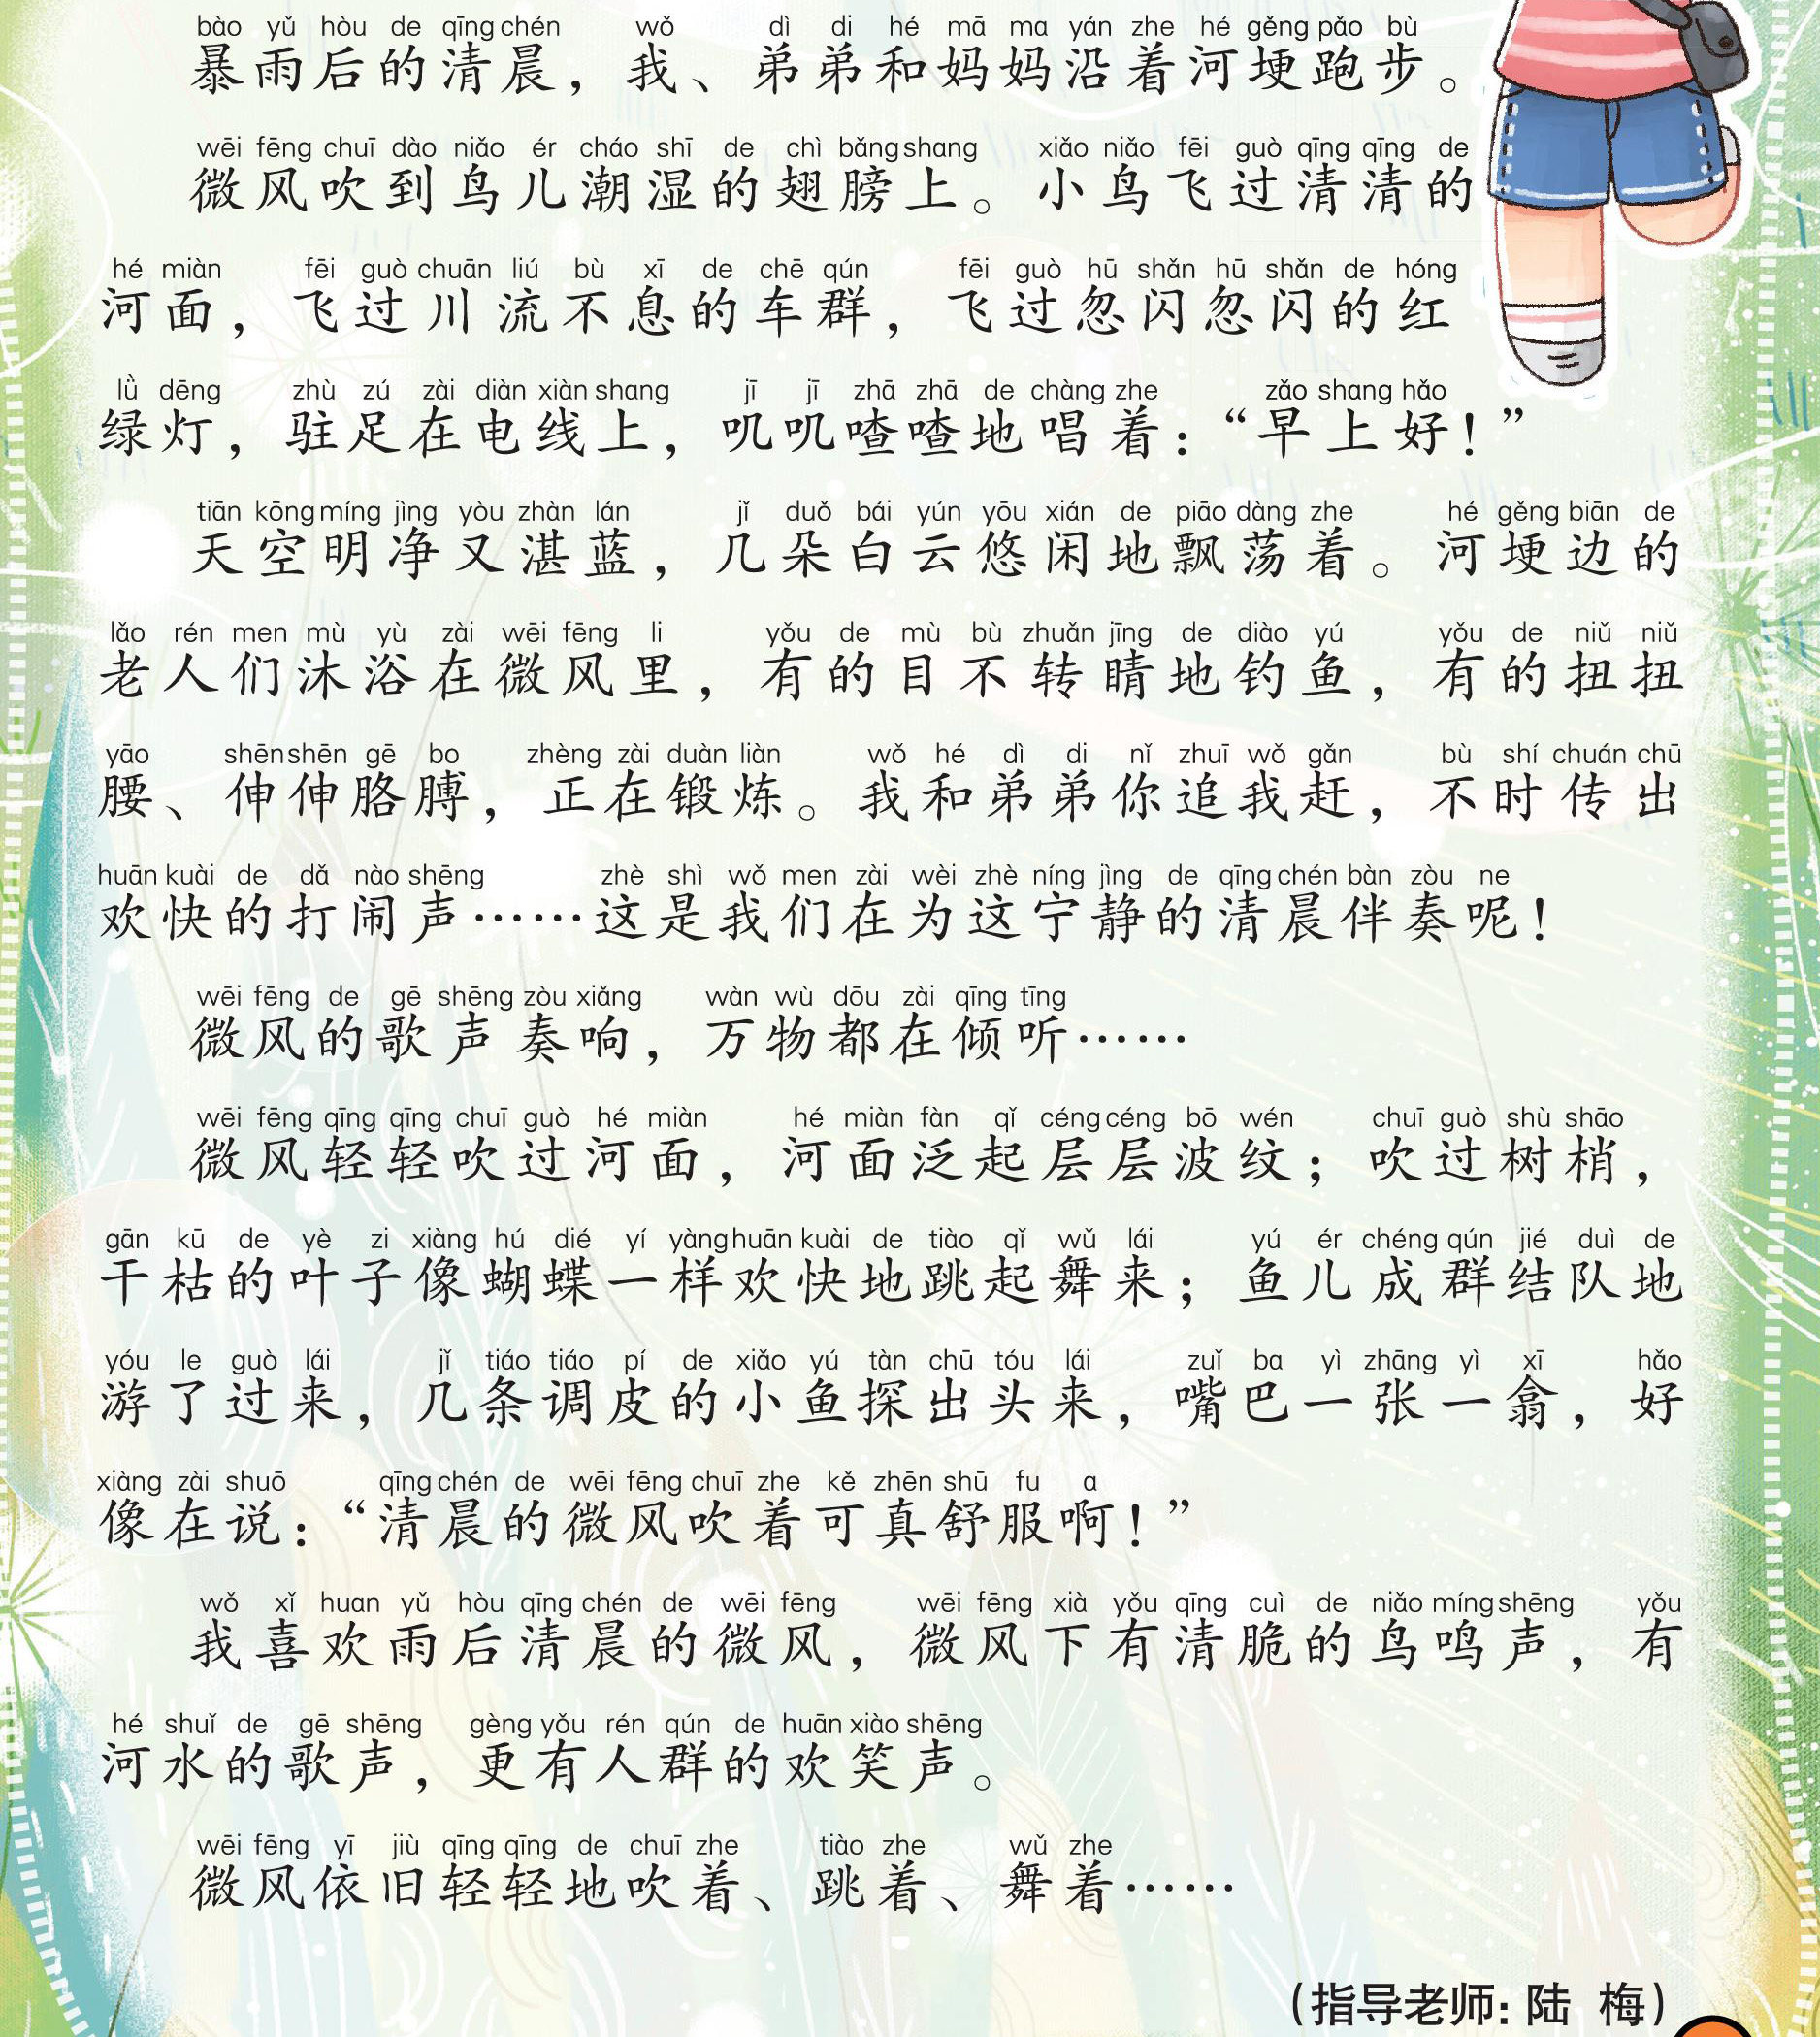 bào yǔ hòu de qīng chén wǒ dì di hé mā ma yán zhe hé gěng pǎo bù
暴雨后的清晨，我、弟弟和妈妈沿着河埂跑步。
wēi fēng chuī dào niǎo ér cháo shī de chì bǎng shang xiǎo niǎo fēi guò qīng qīng de
微风吹到鸟儿潮湿的翅膀上。小鸟飞过清清的
hé miàn fēi guò chuān liú bù xī de chē qún fēi guò hū shǎn hū shǎn de hóng
河面，飞过川流不息的车群，飞过忽闪忽闪的红
lǜ dēng zhù zú zài diàn xiàn shang jī jī zhā zhā de chàng zhe zǎo shang hǎo
绿灯，驻足在电线上，叽叽喳喳地唱着：“早上好！”
tiān kōng míng jìng yòu zhàn lán jǐ duǒ bái yún yōu xián de piāo dàng zhe hé gěng biān de
天空明净又湛蓝，几朵白云悠闲地飘荡着。河埂边的
lǎo rén men mù yù zài wēi fēng li yǒu de mù bù zhuǎn jīng de diào yú yǒu de niǔ niǔ
老人们沐浴在微风里，有的目不转睛地钓鱼，有的扭扭
yāo shēn shēn gē bo zhèng zài duàn liàn wǒ hé dì di nǐ zhuī wǒ gǎn bù shí chuán chū
腰、伸伸胳膊，正在锻炼。我和弟弟你追我赶，不时传出
huān kuài de dǎ nào shēng zhè shì wǒ men zài wèi zhè níng jìng de qīng chén bàn zòu ne
欢快的打闹声……这是我们在为这宁静的清晨伴奏呢！
wēi fēng de gē shēng zòu xiǎng wàn wù dōu zài qīng tīng
微风的歌声奏响，万物都在倾听……
wēi fēng qīng qīng chuī guò hé miàn hé miàn fàn qǐ céng céng bō wén chuī guò shù shāo
微风轻轻吹过河面，河面泛起层层波纹；吹过树梢，
gān kū de yè zi xiàng hú dié yí yàng huān kuài de tiào qǐ wǔ lái yú ér chéng qún jié duì de
干枯的叶子像蝴蝶一样欢快地跳起舞来；鱼儿成群结队地
yóu le guò lái jǐ tiáo tiáo pí de xiǎo yú tàn chū tóu lái zuǐ ba yì zhāng yì xī hǎo
游了过来，几条调皮的小鱼探出头来，嘴巴一张一翕，好
xiàng zài shuō qīng chén de wēi fēng chuī zhe kě zhēn shū fu a
像在说：“清晨的微风吹着可真舒服啊！”
wǒ xǐ huan yǔ hòu qīng chén de wēi fēng wēi fēng xià yǒu qīng cuì de niǎo míng shēng yǒu
我喜欢雨后清晨的微风，微风下有清脆的鸟鸣声，有
hé shuǐ de gē shēng gèng yǒu rén qún de huān xiào shēng
河水的歌声，更有人群的欢笑声。
wēi fēng yī jiù qīng qīng de chuī zhe tiào zhe wǔ zhe
微风依旧轻轻地吹着、跳着、舞着……
（指导老师：陆 梅）